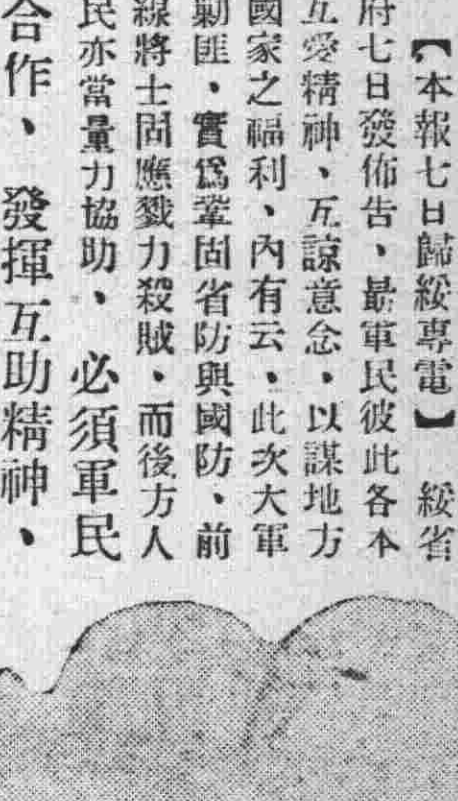 【本報七日歸綏專電】 綏省
府七日發佈告、最軍民彼此各本
互愛精神、互諒意念、以謀地方
國家之福利、內有云、此次大軍
剿匪、實爲鞏固省防與國防、前
線將士固應戮力殺賊、而後方人
民亦當量力協助、必須軍民
合作、發揮互助精神、